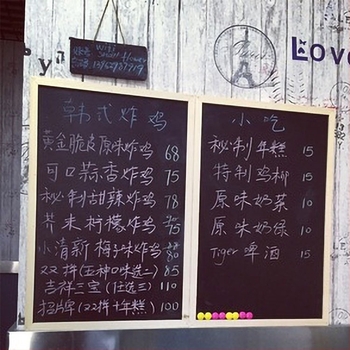 with
smart flower
Love
韩式炸鸡
黄金脆皮原味炸鸡 68
可口蒜香炸鸡 75
秘制甜辣炸鸡 78
芥末柠檬炸鸡 75
小清新梅子味炸鸡 80
双拼(五种口味选二) 85
吉祥三宝(任选三) 110
招牌(双拼+年糕) 100
小吃
秘制年糕 15
特制鸡柳 15
原味奶茶 10
原味奶绿 10
Tiger 啤酒 15